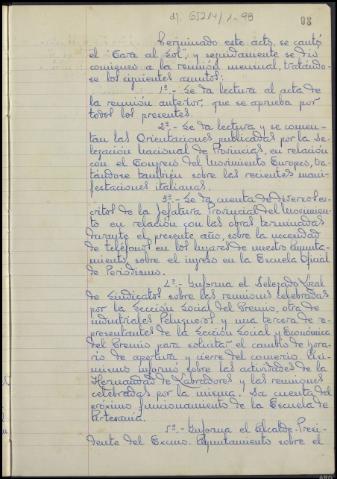 98
Terminado este acto, se cantó
el "Cara al Sol", y seguidamente se dió
comienzo a la reunión mensual, tratándo-
se los siguientes asuntos:
1º.- Se da lectura al acta de
la reunión anterior, que se aprueba por
todos los presentes.
2º.- Se da lectura y se comen-
tan las Orientaciones publicadas por la De-
legación Nacional de Provincias, en relación
con el Congreso del Movimiento Europeo, tra-
tándose también sobre las recientes mani-
festaciones italianas.
3º.- Se da cuenta de diversos es-
critos de la Jefatura Provincial del Movimiento
en relación con las obras terminadas
durante el presente año, sobre la necesidad
de teléfonos en los lugares de nuestro Ayunta-
miento, sobre el ingreso en la Escuela Oficial
de Periodismo.
4º.- Informa el Delegado Local
de Sindicatos sobre las reuniones celebradas
por la Sección Social del Gremio, otra de
industriales Peluqueros y una tercera de re-
presentantes de la Sección Social y Económica
del Gremio para solicitar el cambio de hora-
rio de apertura y cierre del comercio. Asi-
mismo informa sobre las actividades de la
Hermandad de Labradores y las reuniones
celebradas por la misma. Da cuenta del
próximo funcionamiento de la Escuela de
Artesanía.
5º.- Informa el Alcalde-Presi-
dente del Excmo. Ayuntamiento sobre el